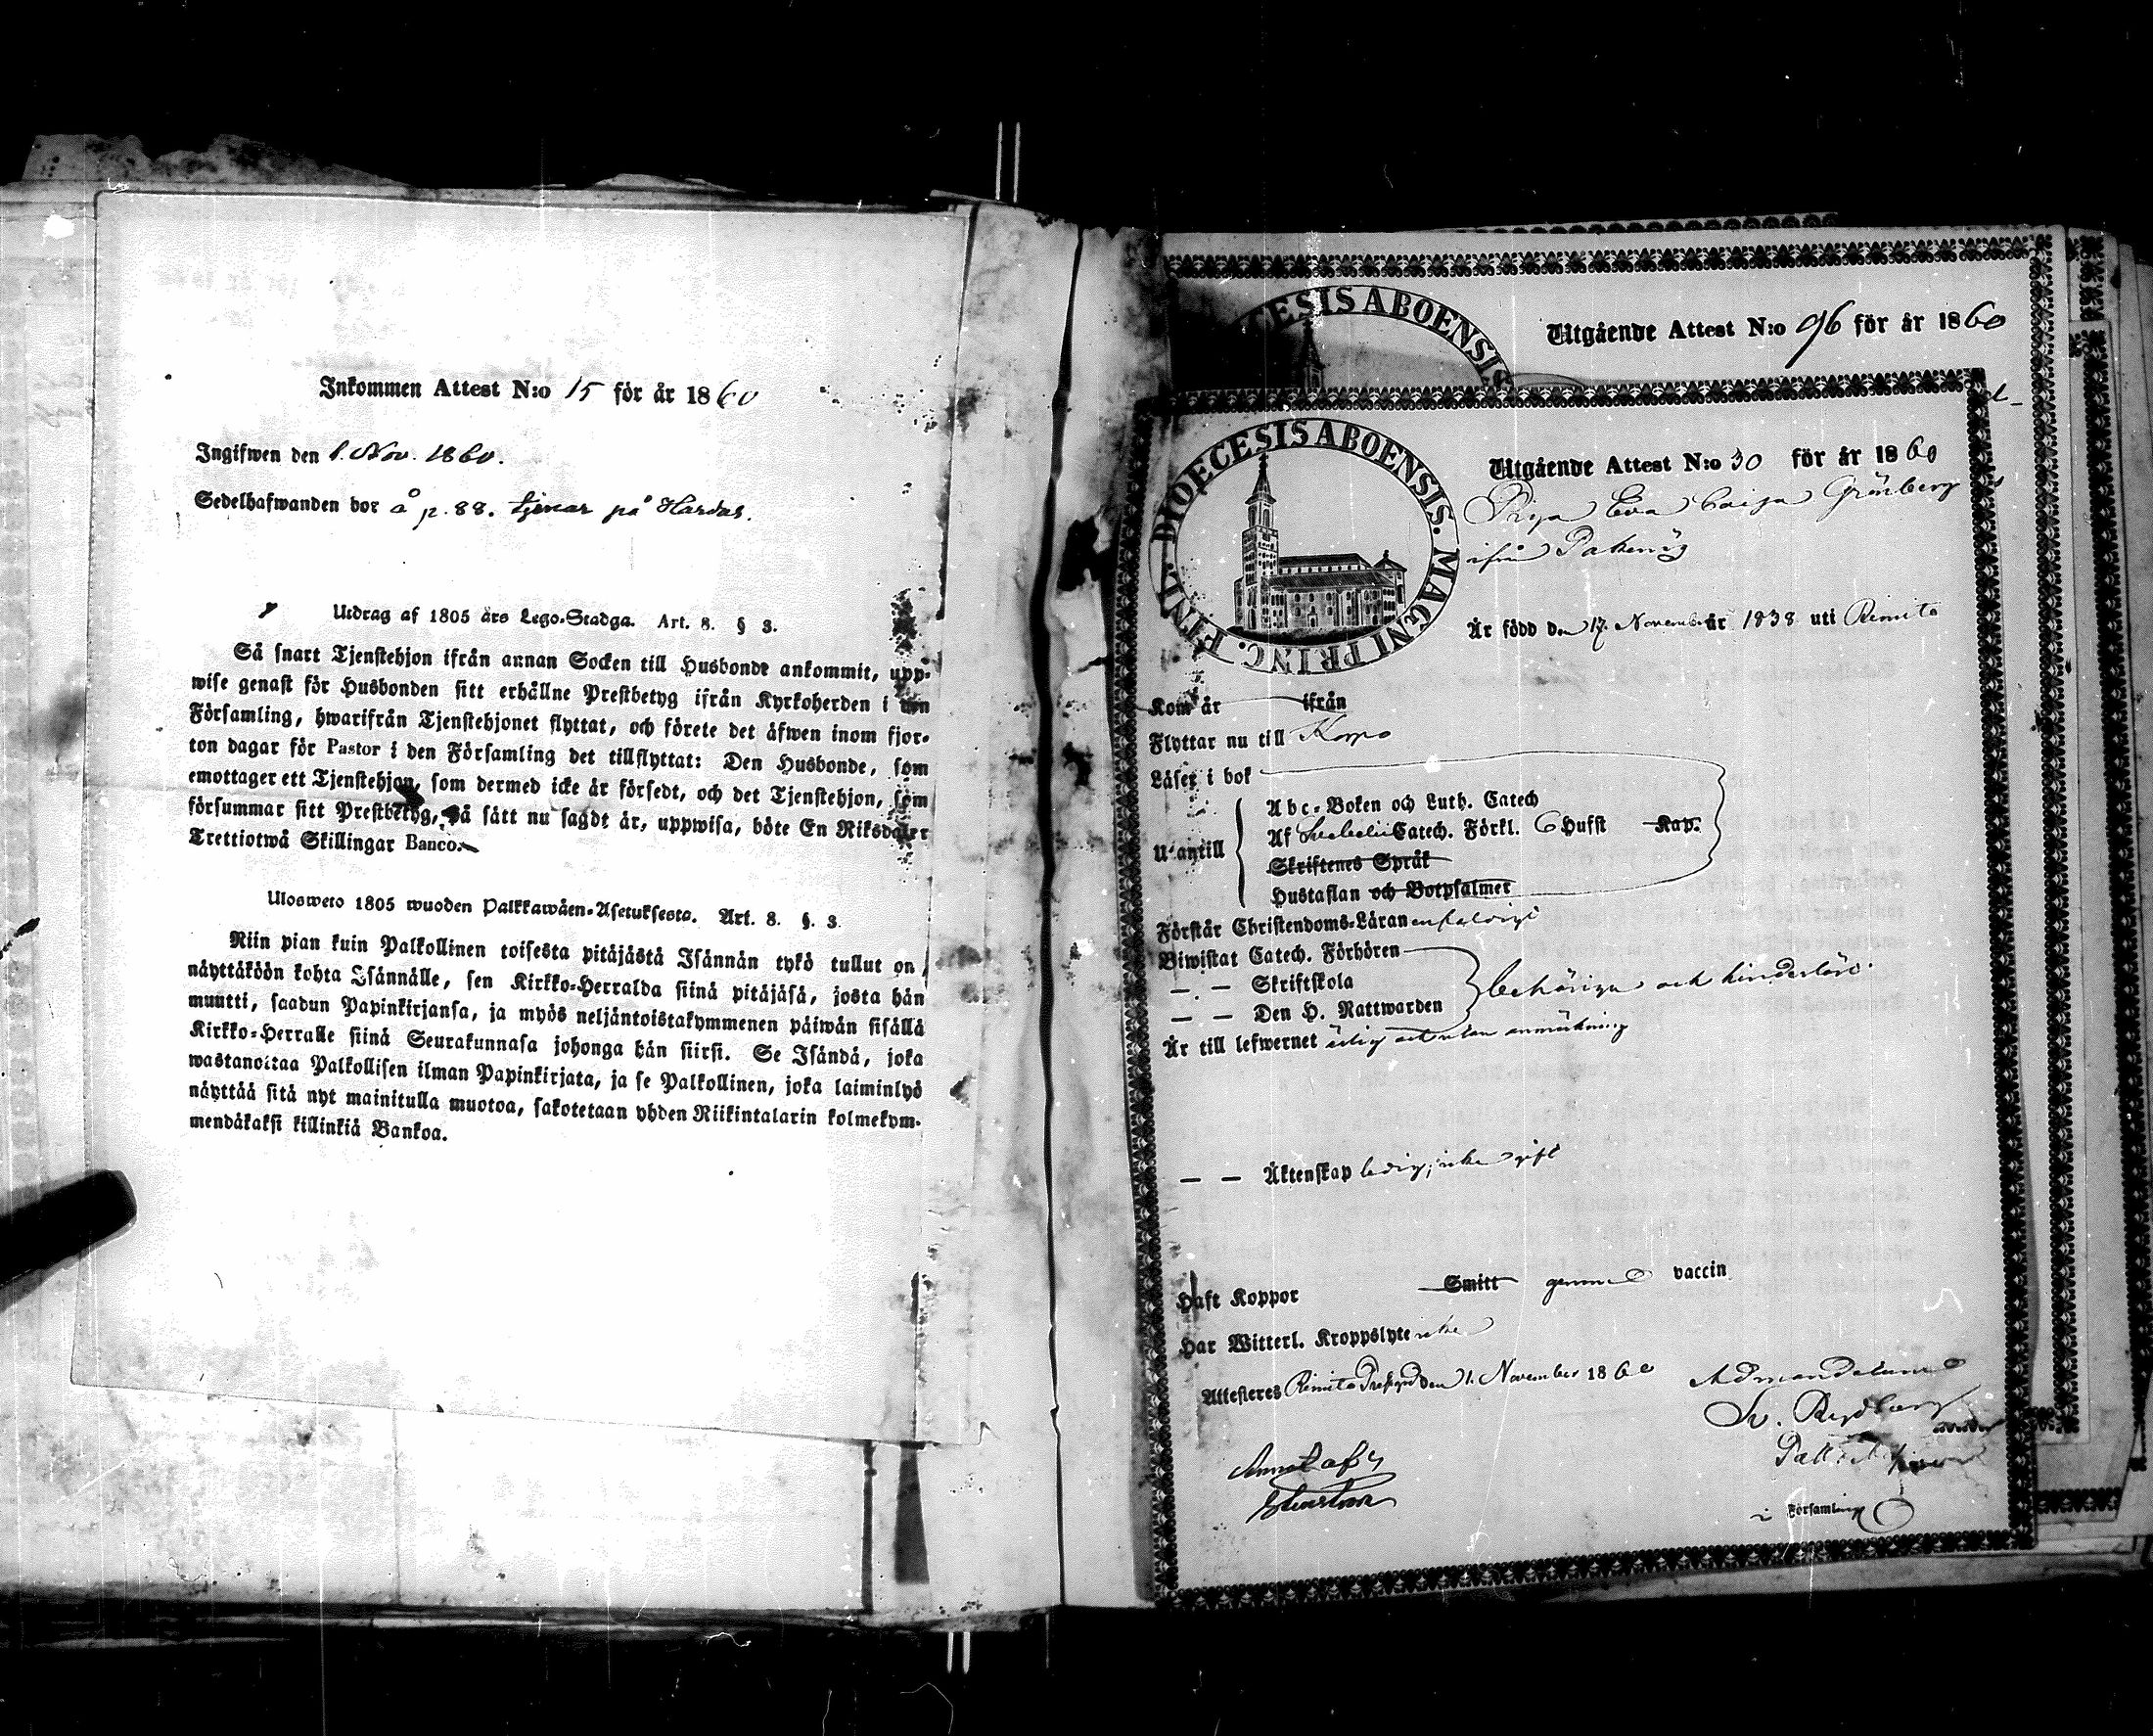 Inkommen Attest N:o 15 för år 1860
Ingifwen den 1. Nov. 1860.
Sedelhafwanden bor å p. 88. tjenar på Hardas.
Utdrag af 1805 års Lego-Stadga. Art. 8. § 3.
Så snart Tjenstehjon ifrån annan Socken till Husbonde ankommit, upp-
wise genast för Husbonden sitt erhållne Prestbetyg ifrån Kyrkoherden i den
Församling, hwarifrån Tjenstehjonet flyttat, och förete det äfwen inom fjor-
ton dagar för Pastor i den Församling det tillflyttat: Den Husbonde, som
emottager ett Tjenstehjon, som dermed icke är försedt, och det Tjenstehjon, som
försummar sitt Prestbetyg, på sätt nu sagdt är, uppwisa, böte En Riksdaler
Trettiotwå Skillingar Banco.
Ulosweto 1805 wuoden Palkkawäen-Asetuksesta. Art. 8. §. 3.
Niin pian kuin Palkollinen toisesta pitäjästä Isännän tykö tullut on,
näyttäköön kohta Isännälle, sen Kirkko-Herralda siinä pitäjäsä, josta hän
muutti, saadun Papinkirjansa, ja myös neljäntoistakymmenen päiwän sisällä
Kirkko-Herralle siinä Seurakunnasa johonga hän siirsi. Se Isändä, joka
wastanottaa Palkollisen ilman Papinkirjata, ja se Palkollinen, joka laiminlyö
näyttää sitä nyt mainitulla muotoa, sakotetaan yhden Riikintalarin kolmekym-
mendäkaksi killinkiä Bankoa.
CESIS ABOENSIS
Utgående Attest N:o 96 för år 1860
DIOECESIS ABOENSIS. MAGNI PRINC. FINL.
Utgående Attest N:o 30 för år 1860
Piga Eva Caisa Grönberg
ifrån
Är född den 17 November år 1838 uti Rimito
Kom år ifrån
Flyttar nu till Korpo
Läser i bok
Utantill
Abc-Boken och Luth. Catech
Af Catech. Förkl. 6 Hufst Kap.
Skriftenes Språk
Hustaflan och Botpsalmer
Förstår Christendoms-Läran enfaldigt
Biwistat Catech. Förhören
— — Skriftskola
— — Den H. Nattwarden
behörigen och hinderlös.
Är till lefwernet ärlig och utan anmärkning
— — Äktenskap ledig, icke gift
Haft Koppor Smitt genom vaccin
Har Witterl. Kroppslyte icke
Attesteras Rimito Prestgård den 1. November 1860
Ad mandatum
Sv. Rydberg
i Församling